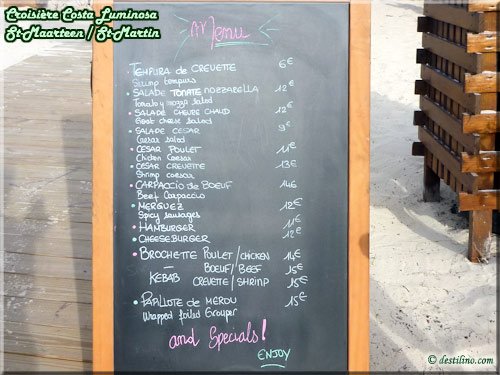 Croisière Costa Luminosa
St-Maarteen / St-Martin
Menu
TEMPURA de CREVETTE 6€
Srimp tempura
SALADE TOMATE MOZZABELLA 12€
Tomato y mozza salad
SALADE CHEVRE CHAUD 12€
Goat cheese salad
SALADE CESAR 9€
Cesar salad
CESAR POULET 11€
Chicken Caesar
CESAR CREVETTE 13€
Shrimp caesar
CARPACCIO de BOEUF 14€
Beef Carpaccio
MERGUEZ 12€
Spicy sausages
HAMBURGER 11€
CHEESEBURGER 12€
BROCHETTE POULET/CHICKEN 14€
— BOEUF/BEEF 15€
KEBAB CREVETTE/SHRIMP 15€
PAPILLOTE de MEROU 15€
Wrapped foiled Grouper
and Specials!
ENJOY
© destilino.com